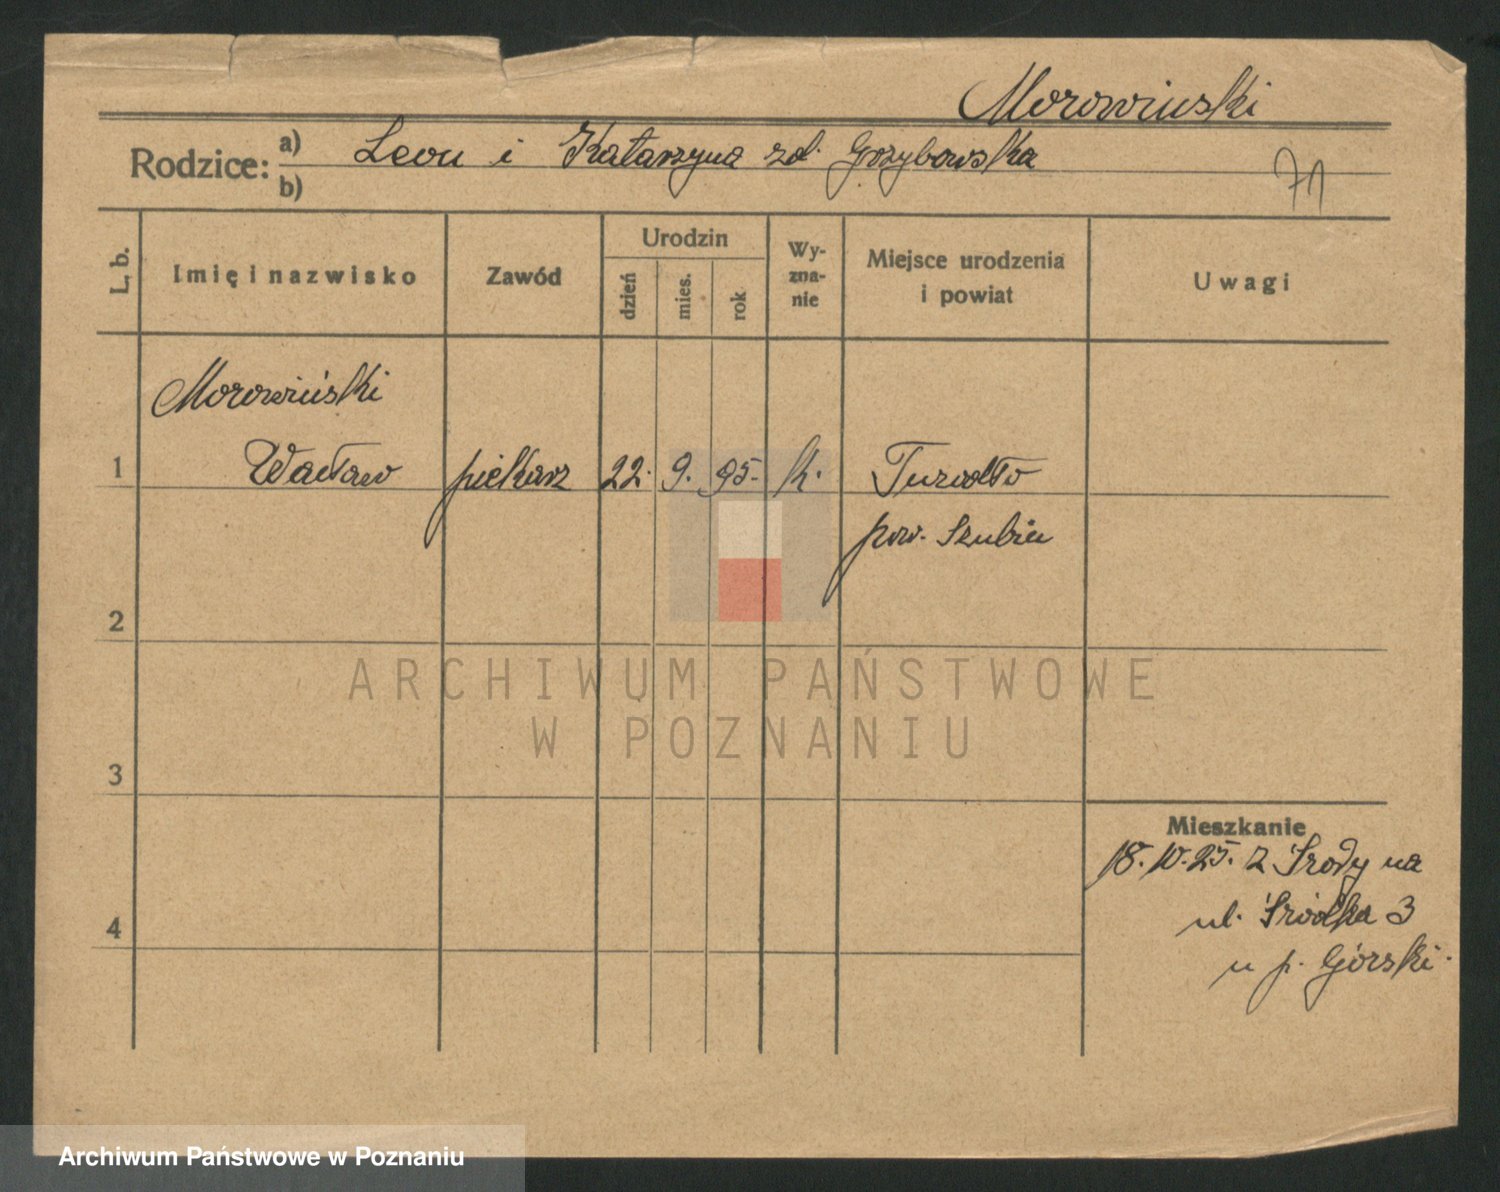 Morowiński
Rodzice: a) Leon i Katarzyna zd. Grzybowska
b)
71
L. b.
Imię i nazwisko
Zawód
Urodzin
dzień
mies.
rok
Wy-
zna-
nie
Miejsce urodzenia
i powiat
Uwagi
Morowiński
1 Wacław piekarz 22. 9. 95. k.
pow. Szubin
2
ARCHIWUM PAŃSTWOWE
W POZNANIU
3
Mieszkanie
18.10.25. z Środy na
ul. Śródka 3
u p. Górski.
4
Archiwum Państwowe w Poznaniu